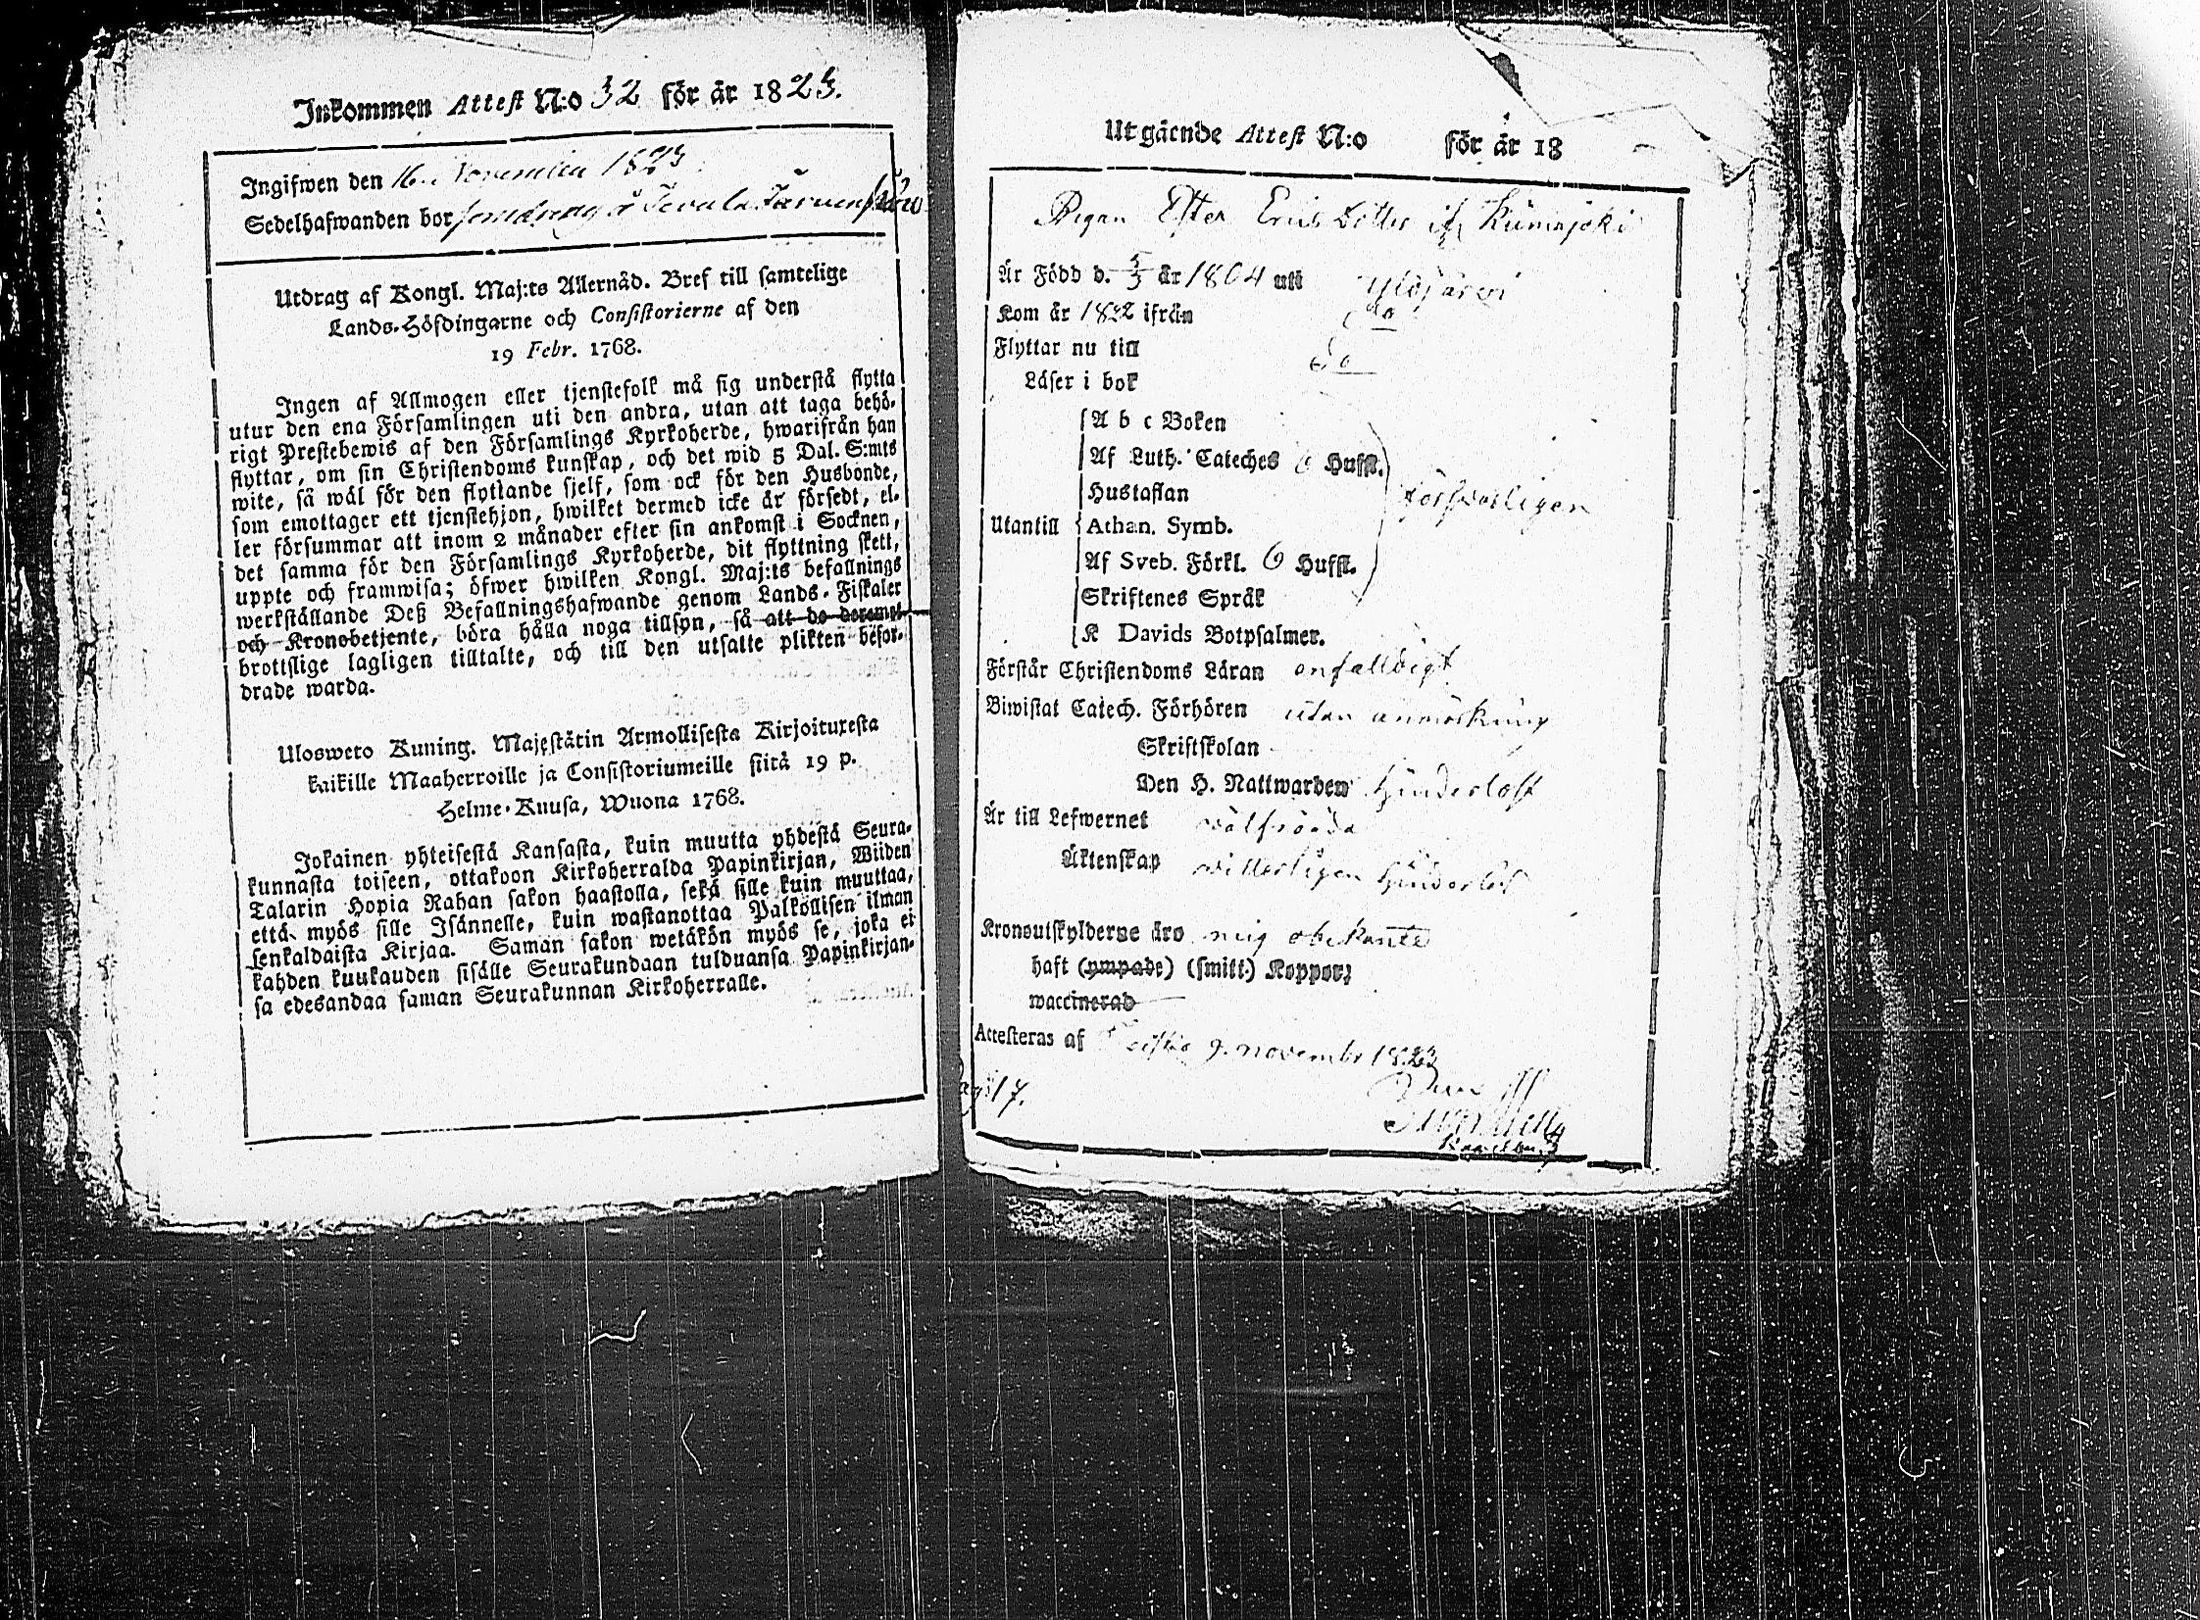 Inkommen Attest N:o 32 för år 1823.
Ingifwen den 16. November 1823.
Sedelhafwanden bor
Utdrag af Kongl. Maj:ts Allernåd. Bref till samtelige
Lands-Höfdingarne och Consistorierne af den
19 Febr. 1768.
Ingen af Allmogen eller tjenstefolk må sig understå flytta
utur den ena Församlingen uti den andra, utan att taga behö-
rigt Prestebewis af den Församlings Kyrkoherde, hwarifrån han
flyttar, om sin Christendoms kunskap, och det wid 5 Dal. S:mts
wite, så wäl för den flyttande sjelf, som ock för den Husbonde,
som emottager ett tjenstehjon, hwilket dermed icke är försedt, el-
ler försummar att inom 2 månader efter sin ankomst i Socknen,
det samma för den Församlings Kyrkoherde, dit flyttning skett,
uppte och framwisa; öfwer hwilken Kongl. Maj:ts befallnings
werkställande Deß Befallningshafwande genom Lands-Fiskaler
och Kronobetjente, böra hålla noga tillsyn, så att de deremot
brottslige lagligen tilltalte, och till den utsatte plikten befor-
drade warda.
Ulosweto Kuning. Majestätin Armollisesta Kirjoituxesta
kaikille Maaherroille ja Consistoriumeille siitä 19 p.
Helme-Kuusa, Wuona 1768.
Jokainen yhteisestä Kansasta, kuin muutta yhdestä Seura-
kunnasta toiseen, ottakoon Kirkoherralda Papinkirjan, Wiiden
Talarin Hopia Rahan sakon haastolla, sekä sille kuin muuttaa,
että myös sille Isännelle, kuin wastanottaa Palkollisen ilman
senkaldaista Kirjaa. Saman sakon wetäkön myös se, joka ei
kahden kuukauden sisälle Seurakundaan tulduansa Papinkirjan-
sa edesandaa saman Seurakunnan Kirkoherralle.
Utgående Attest N:o för år 18
Pigan Ester Eriks Dotter if Kuninjoki
Är Född d. 5/3 år 1804 uti Ylöjärwi
Kom år 1822 ifrån do
Flyttar nu till do
Läser i bok
A b c Boken
Af Luth. Cateches 6 Hufst.
Hustaflan
försvarligen
Utantill Athan. Symb.
Af Sveb. Förkl. 6 Hufst.
Skriftenes Språk
K Davids Botpsalmer.
Förstår Christendoms Läran enfalldigt
Biwistat Catech. Förhören utan anmärkning
Skriftskolan
Den H. Nattwarden hinderlöst
Är till Lefwernet wälfrägda
Äktenskap witterligen hinderlös
Kronoutskylderne äro mig obekante
haft (ympade) (smitt.) Koppor;
waccinerad
Attesteras af 9. novembr 1823